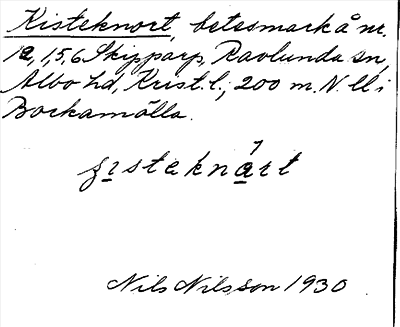 Kisteknort, betesmark å nr.
12, 1, 5, 6 Skipparp, Ravlunda sn,
Albo hd, Krist. l.; 200 m. N. ll i
Bockamölla.
Nils Nilsson 1930